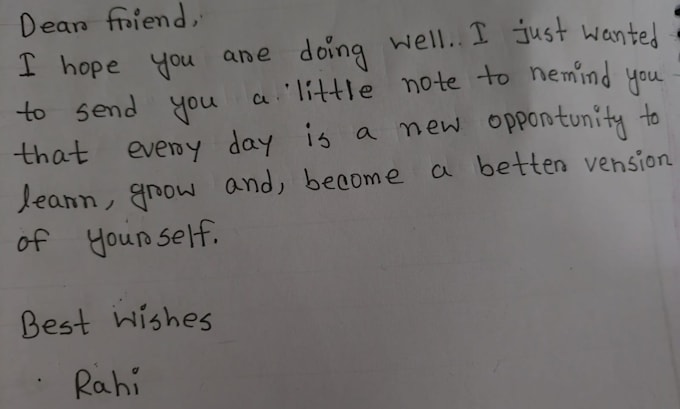 Dear friend,
I hope you are doing well.. I just wanted
to send you a little note to remind you
that every day is a new opportunity to
learn, grow and, become a better version
of yourself.
Best wishes
Rahi